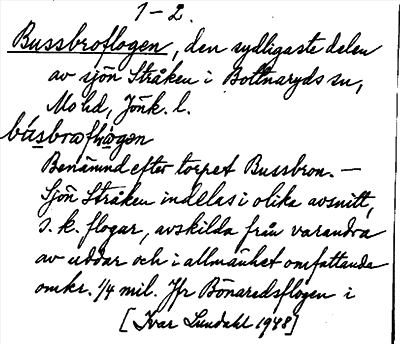 1-2.
Bussbroflogen, den sydligaste delen
av sjön Stråken i Bottnaryds sn,
Mo hd, Jönk. l.
Benämnd efter torpet Bussbron. —
Sjön Stråken indelas i olika avsnitt,
s. k. flogar, avskilda från varandra
av uddar och i allmänhet omfattande
omkr. 1/4 mil. Jfr Bönaredsflogen i
[Ivar Lundahl 1948]